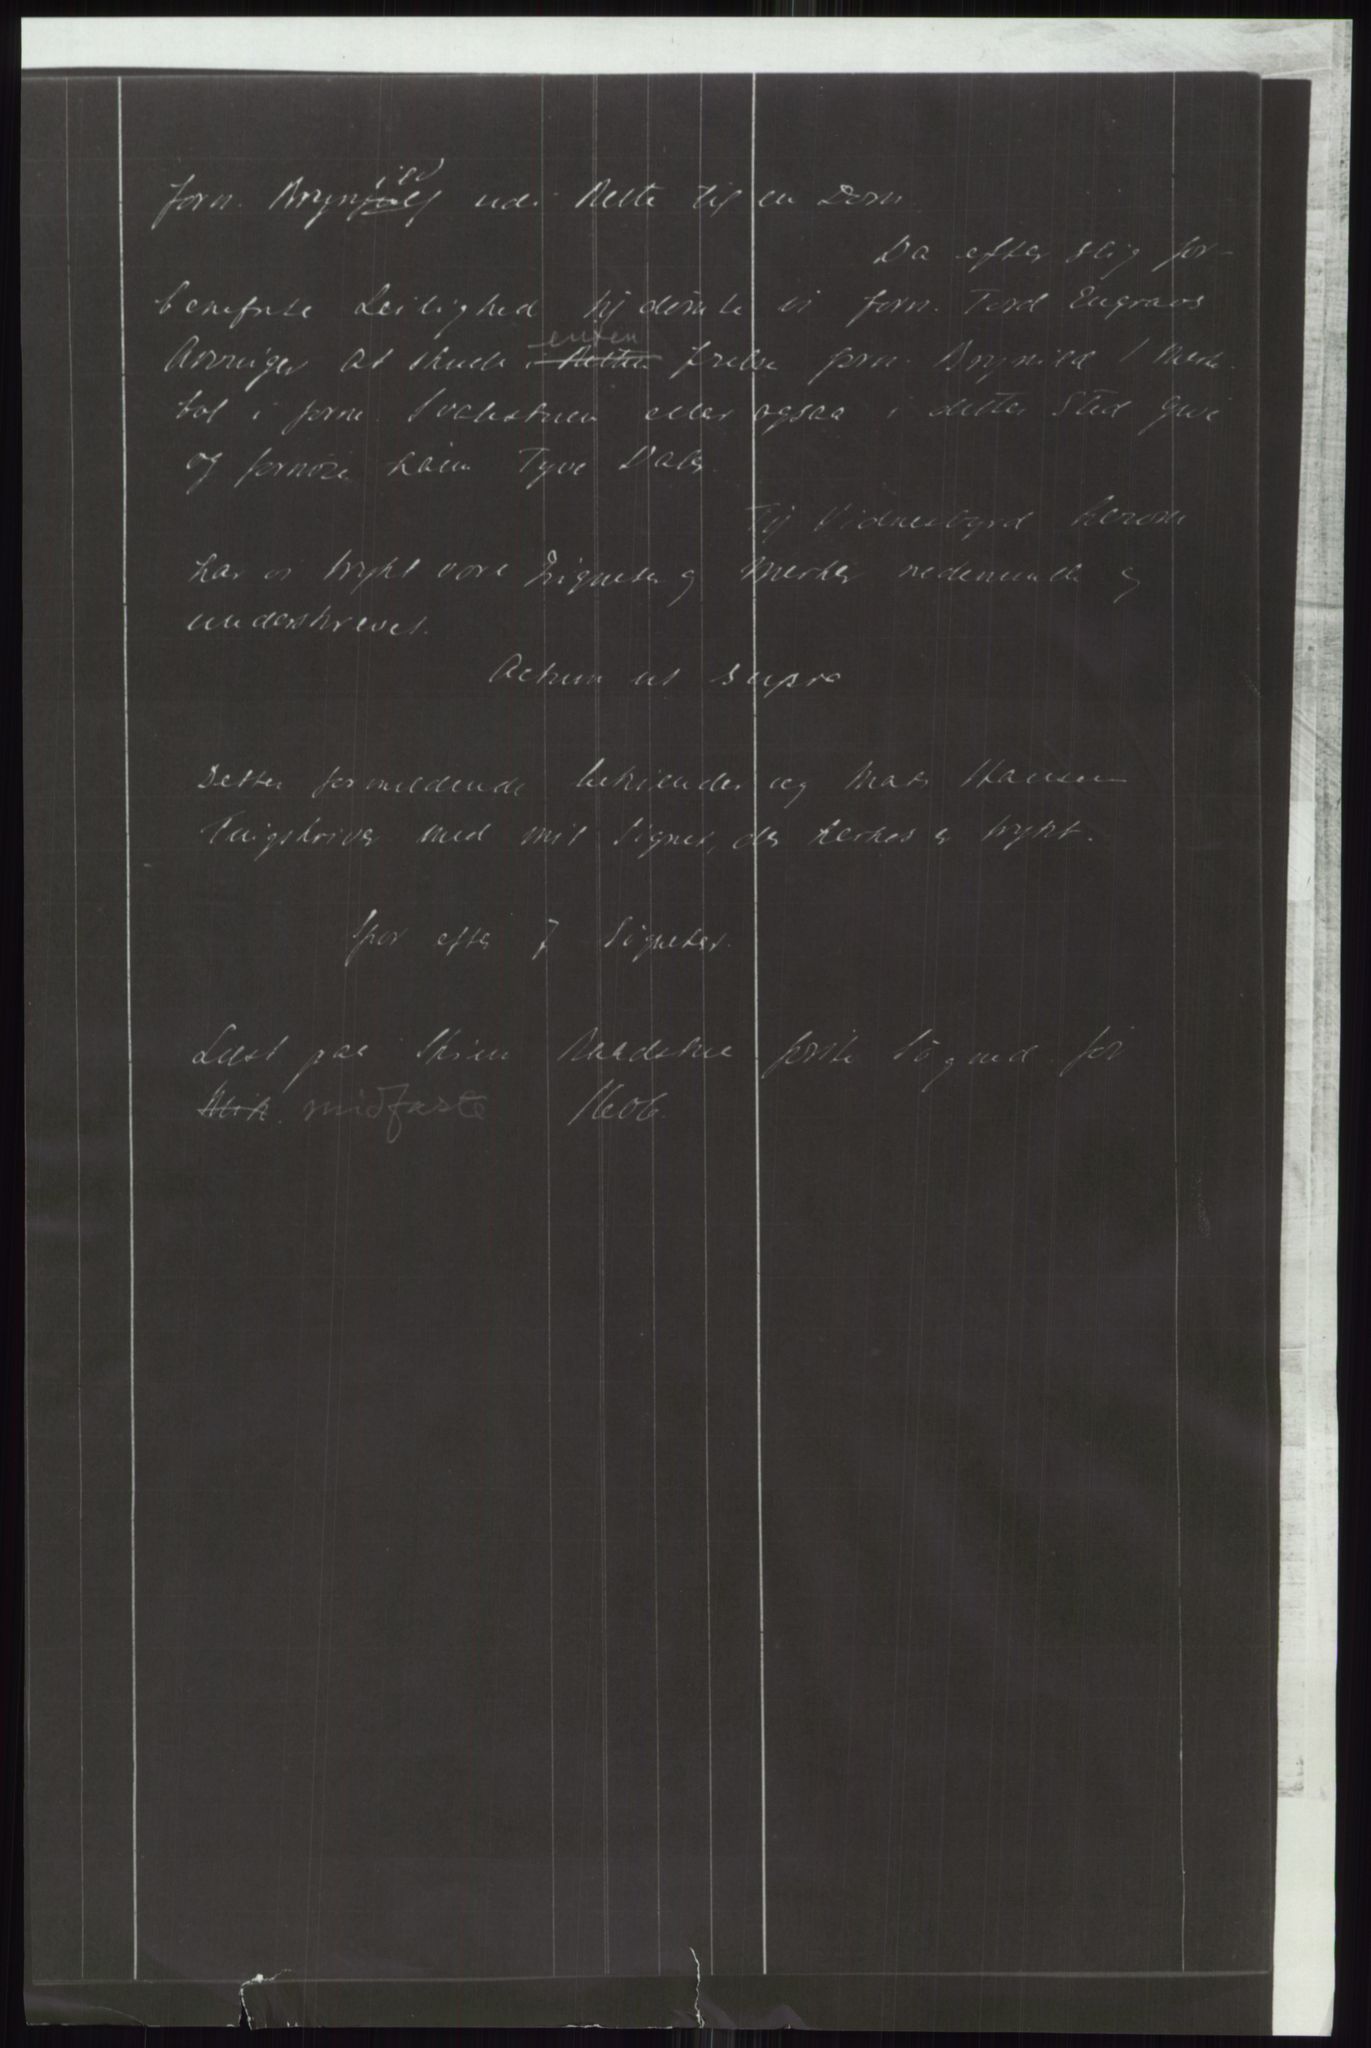 forn. Brynild udi Rette til en Dom.
Da efter slig for-
benefnte Leilighed tij dömte vi forn. Tord Eugravs
Arvinger at skulle enten frelse forn. Brynild 1 Mark-
bol i forn. eller ogsaa i dette Sted give
og fornöie ham Tyve Daler.
Tij Vidnesbyrd herom
har vi trykt vore Zigneter og Merker nedenunder og
underskrevet.
Actum ut supra
Dette formeldende bekiender jeg Mats Hansen
Tingskriver med mit Signet, der herhos er trykt.
Spor efter 7 Signeter.
Lest paa Skien Raadstue förste Sögned for
midfaste 1606.